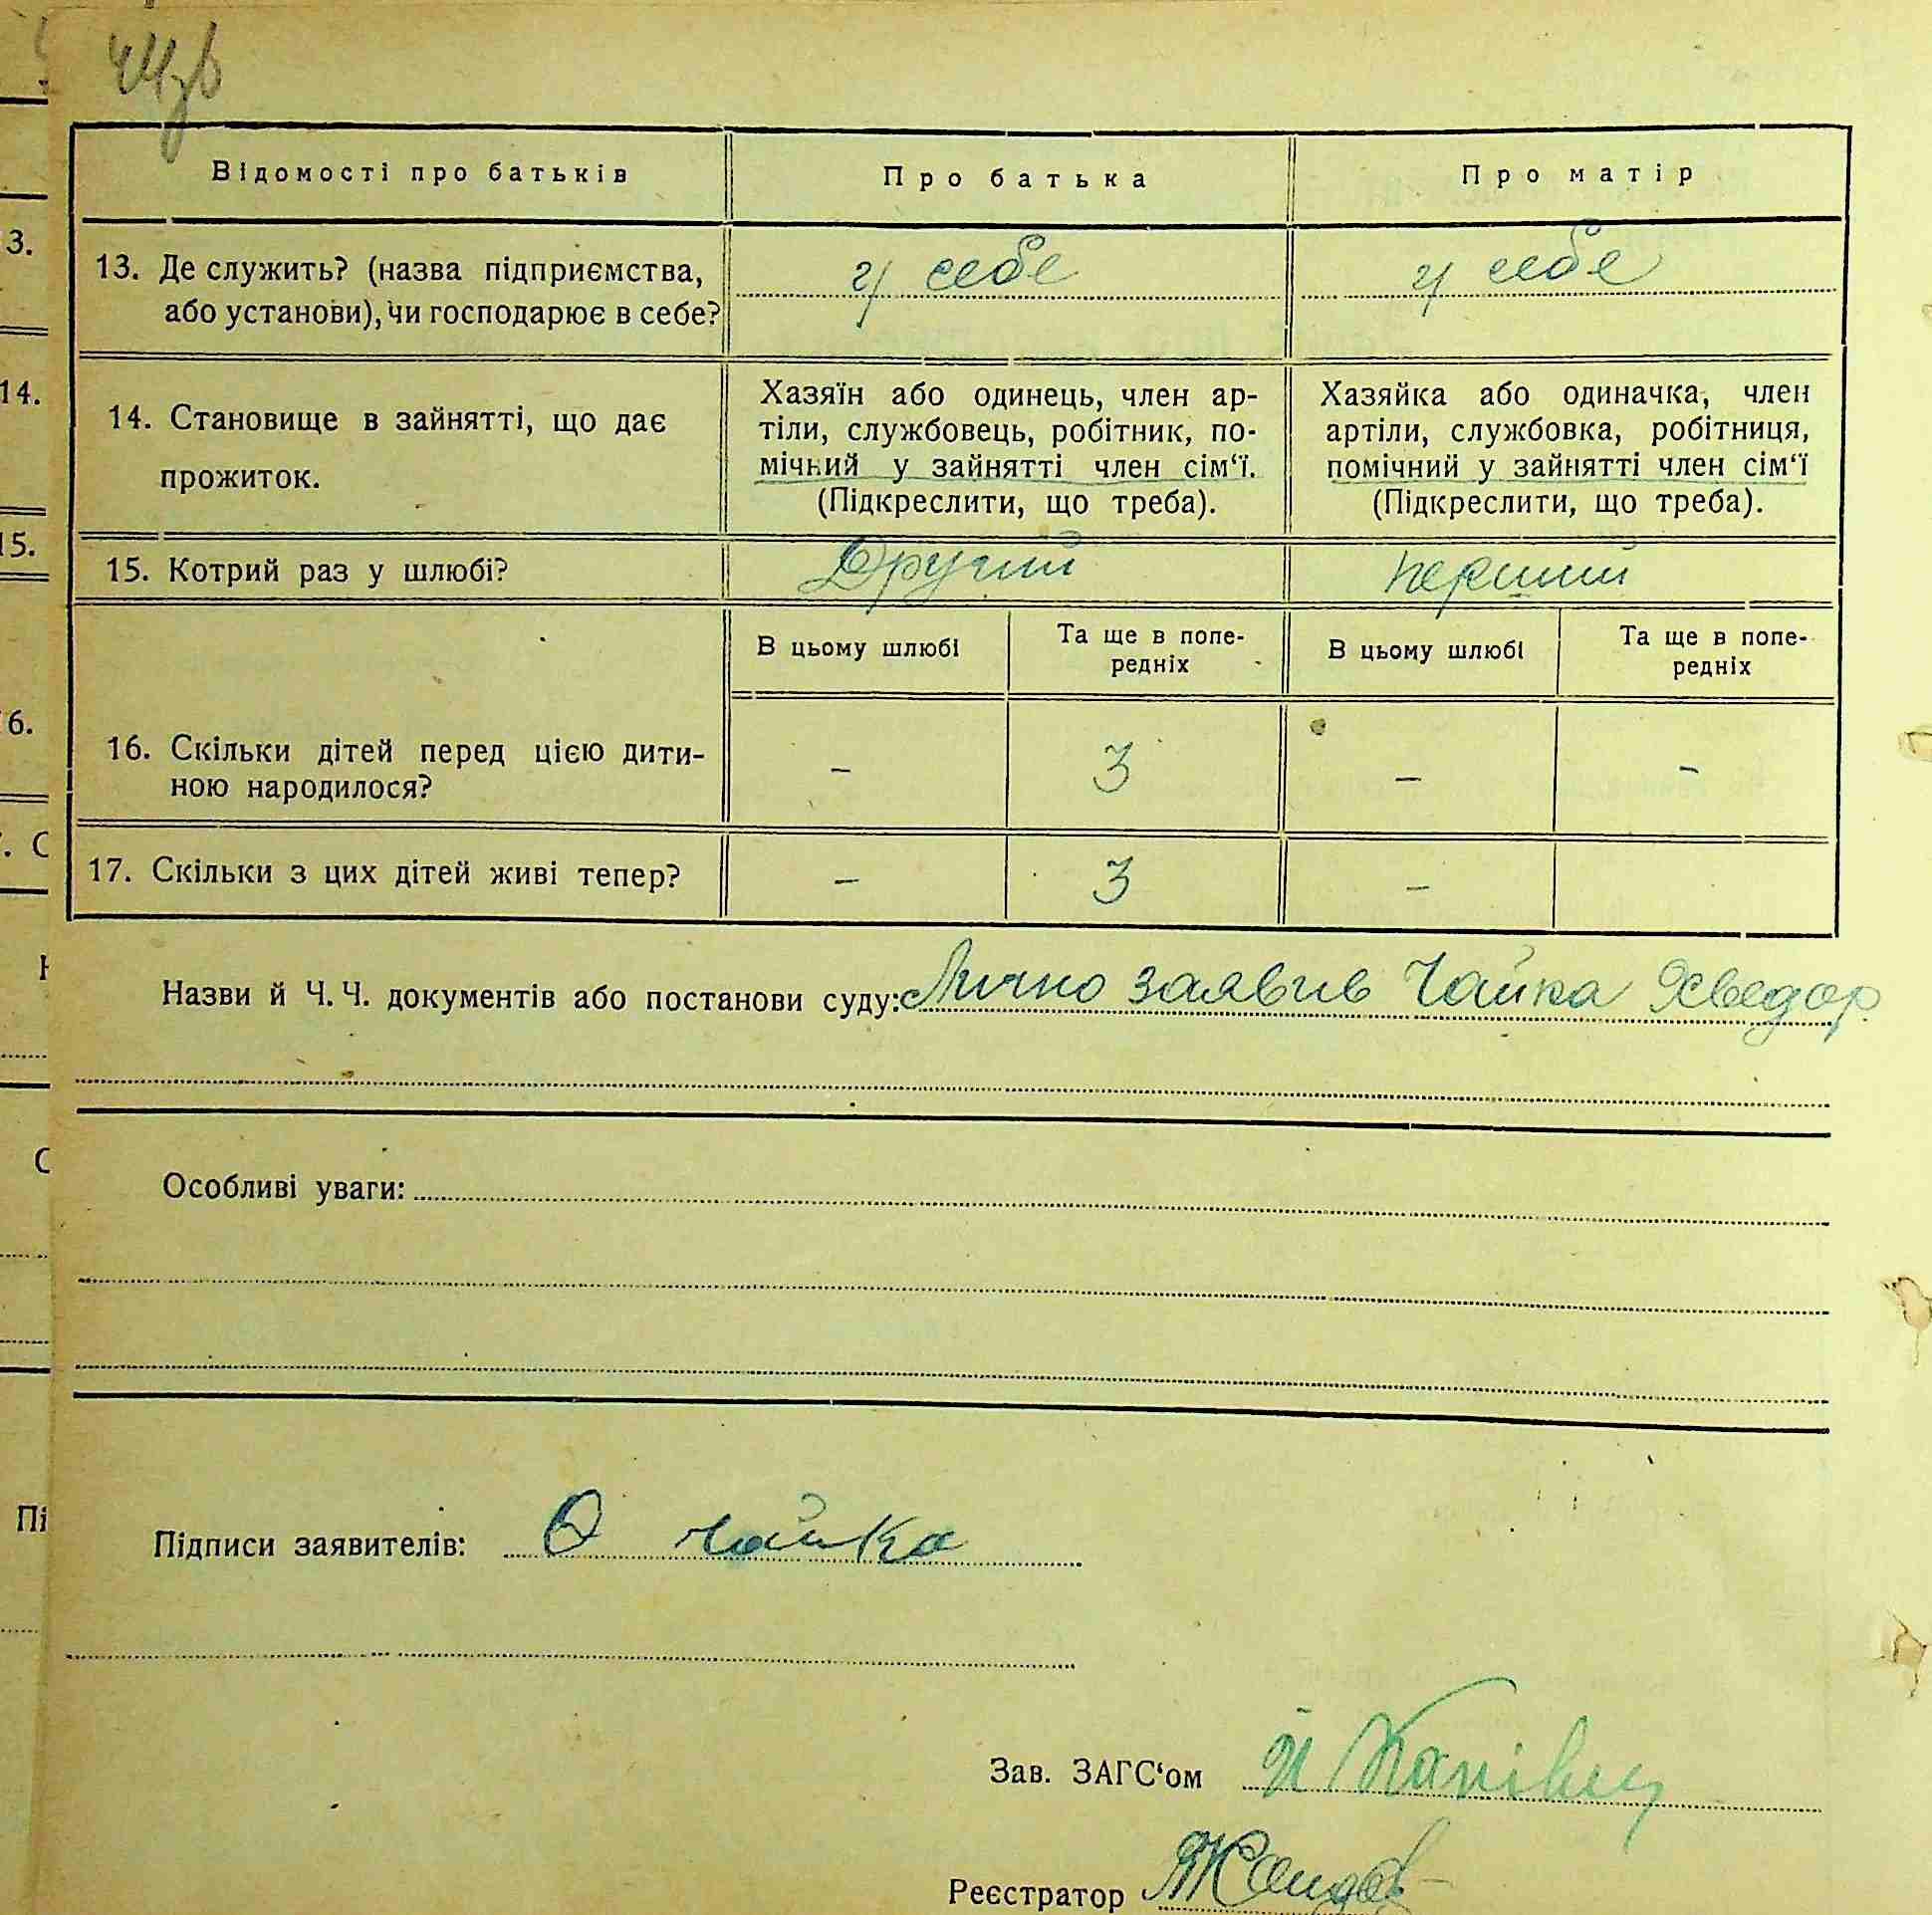 Відомості про батьків
Про батька
Про матір
13. Де служить? (назва підприємства,
або установи), чи господарює в себе?
у себе
у себе
14. Становище в зайнятті, що дає
прожиток.
Хазяїн або одинець, член ар-
тіли, службовець, робітник, по-
мічний у зайнятті член сім‘ї.
(Підкреслити, що треба).
Хазяйка або одиначка, член
артіли, службовка, робітниця,
помічний у зайнятті член сім‘ї
(Підкреслити, що треба).
15. Котрий раз у шлюбі?
Другий
перший
В цьому шлюбі
Та ще в попе-
редніх
В цьому шлюбі
Та ще в попе-
редніх
16. Скільки дітей перед цією дити-
ною народилося?
–
3
–
–
17. Скільки з цих дітей живі тепер?
–
3
–
Назви й Ч. Ч. документів або постанови суду: Лично заявив Чайка
Особливі уваги:
Підписи заявителів: О Чайка
Зав. ЗАГС‘ом Й Канівец
Реєстратор
3.
14.
15.
6.
Пі